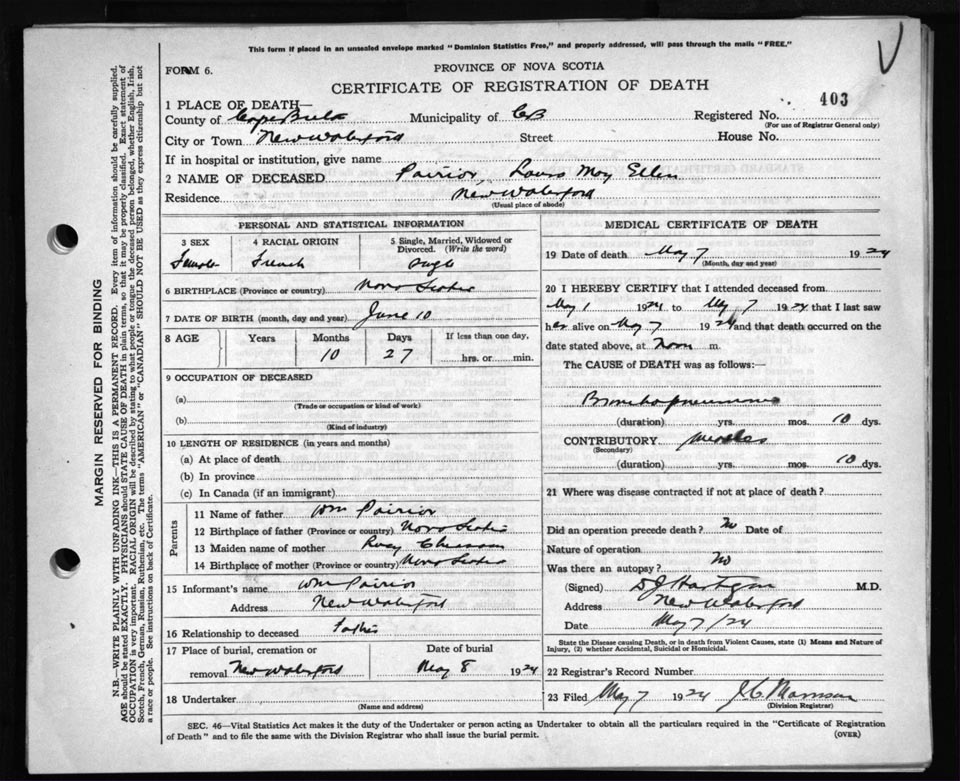 This form if placed in an unsealed envelope marked "Dominion Statistics Free," and properly addressed, will pass through the mails "FREE."
FORM 6.
PROVINCE OF NOVA SCOTIA
CERTIFICATE OF REGISTRATION OF DEATH
403
1 PLACE OF DEATH—
County of Cape Breton Municipality of CB Registered No.
(For use of Registrar General only)
City or Town New Waterford Street House No.
If in hospital or institution, give name
2 NAME OF DECEASED Poirior, May Ellen
Residence New Waterford
(Usual place of abode)
PERSONAL AND STATISTICAL INFORMATION
3 SEX 4 RACIAL ORIGIN 5 Single, Married, Widowed or Divorced. (Write the word)
Female French Single
6 BIRTHPLACE (Province or country) Nova Scotia
7 DATE OF BIRTH (month, day and year) June 10
8 AGE Years Months Days If less than one day,
10 27 hrs. or min.
9 OCCUPATION OF DECEASED
(a)
(Trade or occupation or kind of work)
(b)
(Kind of industry)
10 LENGTH OF RESIDENCE (in years and months)
(a) At place of death
(b) In province
(c) In Canada (if an immigrant)
Parents
11 Name of father Wm Poirior
12 Birthplace of father (Province or country) Nova Scotia
13 Maiden name of mother
14 Birthplace of mother (Province or country) Nova Scotia
15 Informant's name Wm Poirior
Address New Waterford
16 Relationship to deceased Father
17 Place of burial, cremation or removal New Waterford Date of burial May 8 1924
18 Undertaker
(Name and address)
MEDICAL CERTIFICATE OF DEATH
19 Date of death May 7 1924
(Month, day and year)
20 I HEREBY CERTIFY that I attended deceased from
May 1 1924 to May 7 1924 that I last saw
her alive on May 7 1924 and that death occurred on the
date stated above, at Noon m.
The CAUSE of DEATH was as follows:—
Bronchopneumonia
(duration) yrs. mos. 10 dys.
CONTRIBUTORY measles
(Secondary)
(duration) yrs. mos. 10 dys.
21 Where was disease contracted if not at place of death?
Did an operation precede death? No Date of
Nature of operation
Was there an autopsy? No
(Signed) M.D.
Address New Waterford
Date May 7/24
State the Disease causing Death, or in death from Violent Causes, state (1) Means and Nature of Injury, (2) whether Accidental, Suicidal or Homicidal.
22 Registrar's Record Number
23 Filed May 7 1924 J.C. Morrison
(Division Registrar)
SEC. 46—Vital Statistics Act makes it the duty of the Undertaker or person acting as Undertaker to obtain all the particulars required in the "Certificate of Registration
of Death" and to file the same with the Division Registrar who shall issue the burial permit.
(OVER)
MARGIN RESERVED FOR BINDING
N.B.—WRITE PLAINLY WITH UNFADING INK—THIS IS A PERMANENT RECORD. Every item of information should be carefully supplied.
AGE should be stated EXACTLY. PHYSICIANS should STATE CAUSE OF DEATH in plain terms, so that it may be properly classified. Exact statement of
OCCUPATION is very important. RACIAL ORIGIN will be described by stating to what people or tongue the deceased person belonged, whether English, Irish,
Scotch, French, German, Russian, Ruthenian, etc. The terms "AMERICAN" or "CANADIAN" SHOULD NOT BE USED as they express citizenship but not
a race or people. See instructions on back of Certificate.